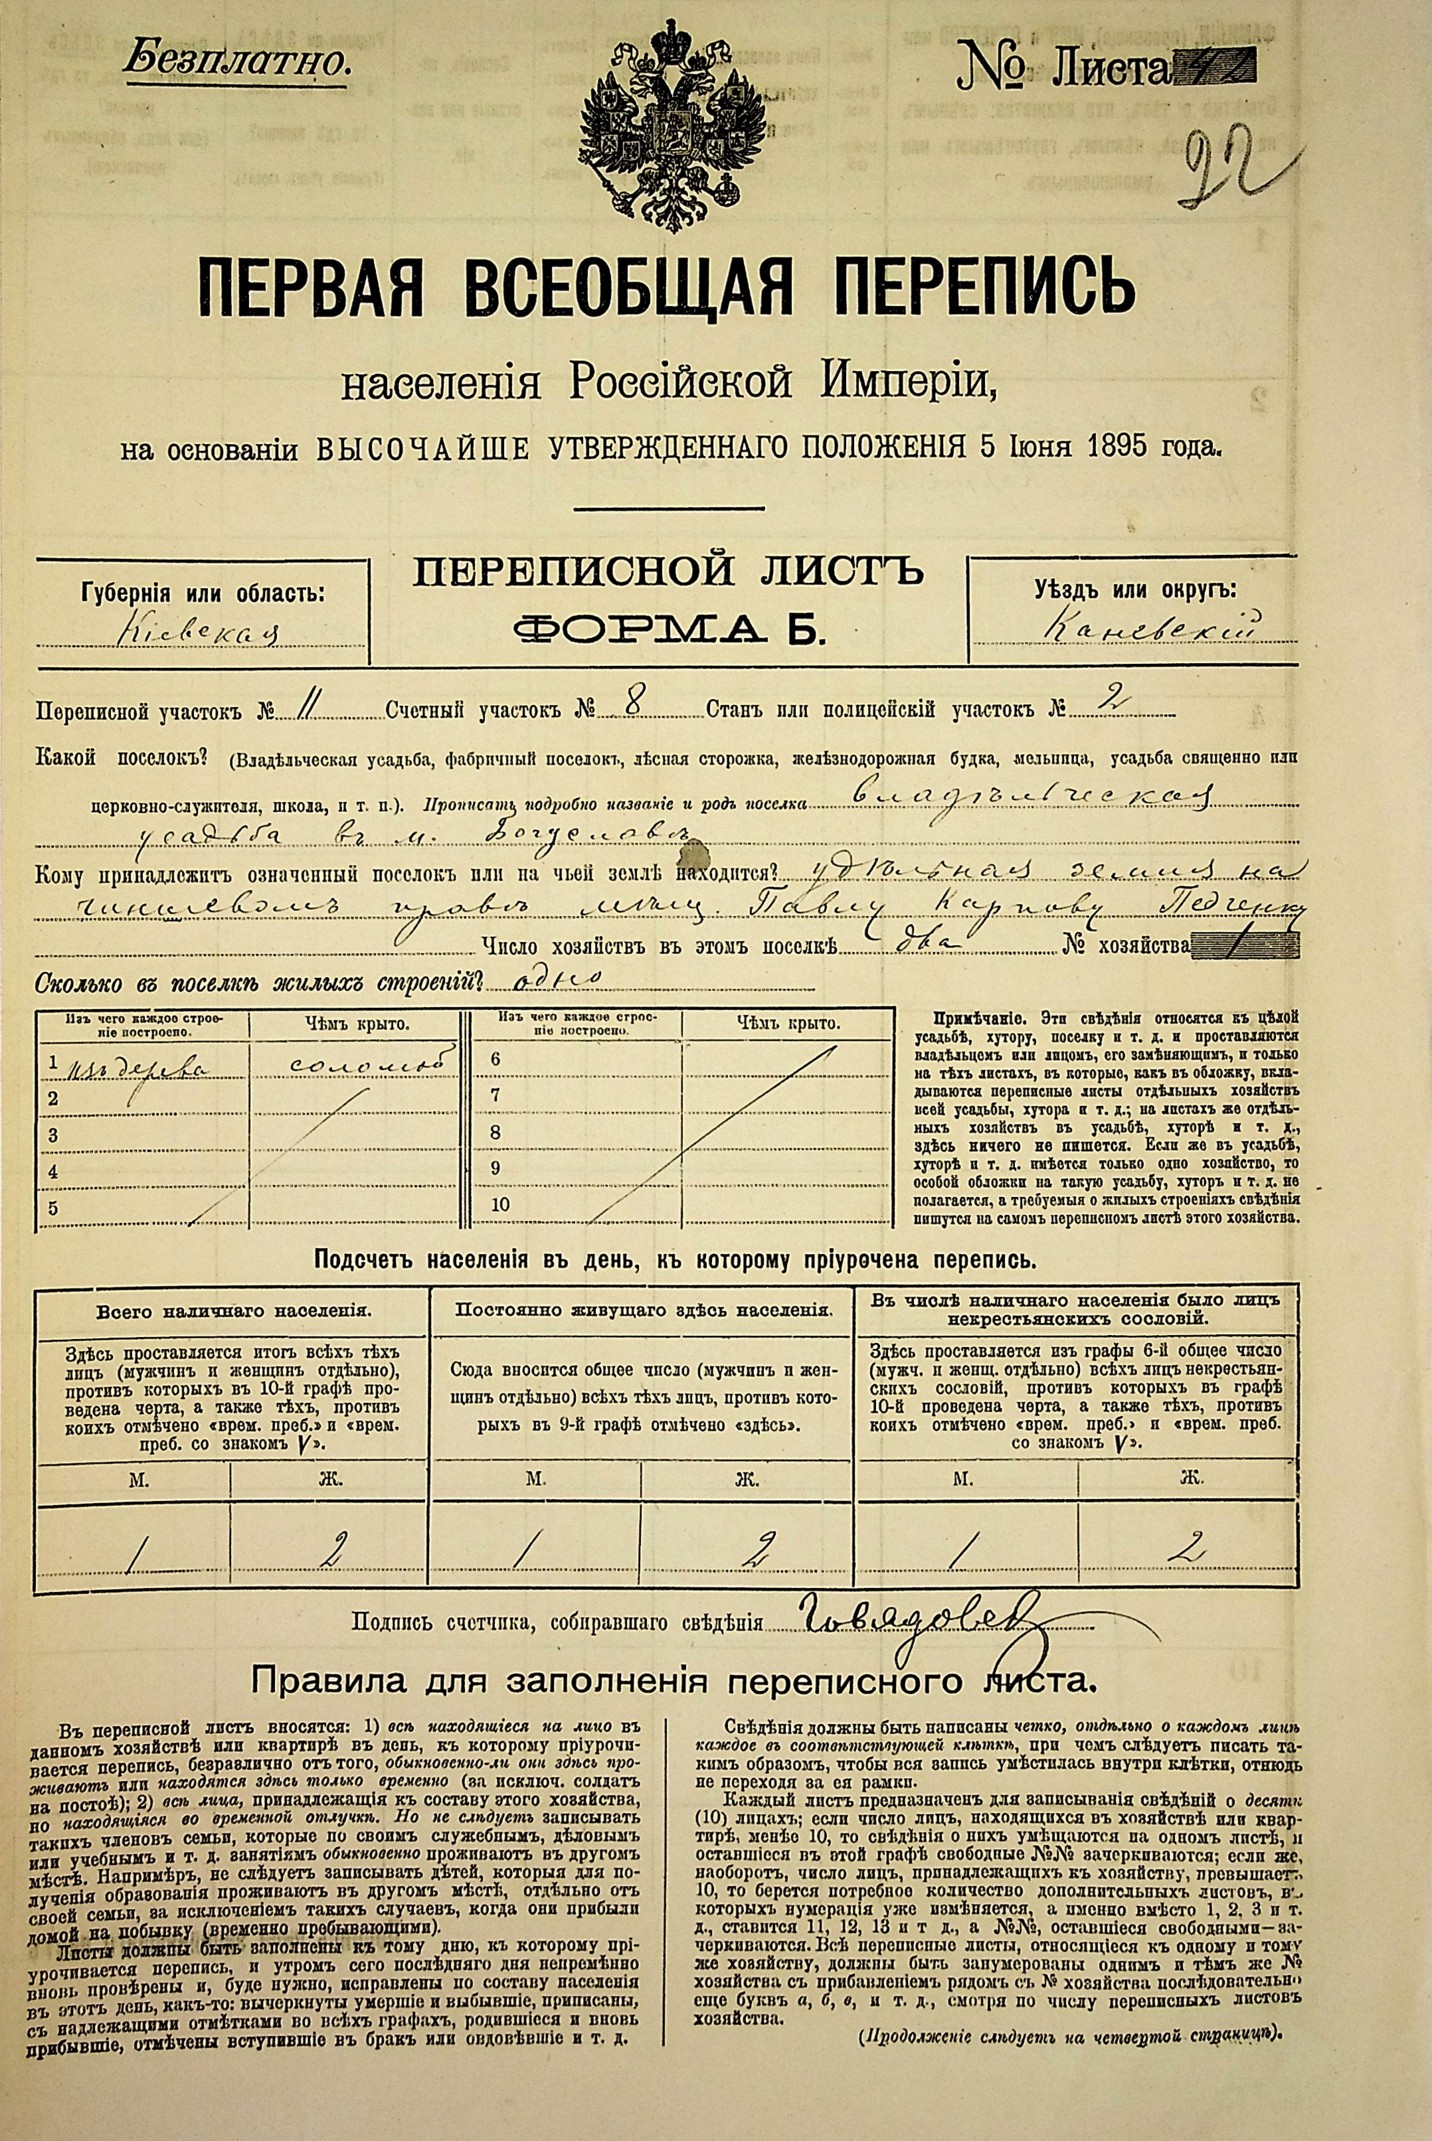 Безплатно.
№ Листа 42
22
ПЕРВАЯ ВСЕОБЩАЯ ПЕРЕПИСЬ
населенія Россійской Имперіи,
на основаніи ВЫСОЧАЙШЕ УТВЕРЖДЕННАГО ПОЛОЖЕНІЯ 5 Іюня 1895 года.
Губернія или область:
Кіевская
ПЕРЕПИСНОЙ ЛИСТЪ
ФОРМА Б.
Уѣздъ или округъ:
Каневскій
Переписной участокъ № 11 Счетный участокъ № 8 Станъ или полицейскій участокъ № 2
Какой поселокъ? (Владѣльческая усадьба, фабричный поселокъ, лѣсная сторожка, желѣзнодорожная будка, мельница, усадьба священно или
церковно-служителя, школа, и т. п.). Прописать подробно названіе и родъ поселка владѣльческая
усадьба въ м. Богуславѣ
Кому принадлежитъ означенный поселокъ или на чьей землѣ находится? удѣльная земля на
чиншевомъ правѣ мѣщ. Павлу Карпову Педченку
Число хозяйствъ въ этомъ поселкѣ два № хозяйства 1
Сколько въ поселкѣ жилыхъ строеній? одно
Изъ чего каждое строе-
ніе построено.
Чѣмъ крыто.
Изъ чего каждое строе-
ніе построено.
Чѣмъ крыто.
1 изъ дерева соломой
2
3
4
5
6
7
8
9
10
Примѣчаніе. Эти свѣдѣнія относятся къ цѣлой
усадьбѣ, хутору, поселку и т. д. и проставляются
владѣльцемъ или лицомъ, его замѣняющимъ, и только
на тѣхъ листахъ, въ которые, какъ въ обложку, вкла-
дываются переписные листы отдѣльныхъ хозяйствъ
всей усадьбы, хутора и т. д.; на листахъ же отдѣль-
ныхъ хозяйствъ въ усадьбѣ, хуторѣ и т. д.,
здѣсь ничего не пишется. Если же въ усадьбѣ,
хуторѣ и т. д. имѣется только одно хозяйство, то
особой обложки на такую усадьбу, хуторъ и т. д. не
полагается, а требуемыя о жилыхъ строеніяхъ свѣдѣнія
пишутся на самомъ переписномъ листѣ этого хозяйства.
Подсчетъ населенія въ день, къ которому пріурочена перепись.
Всего наличнаго населенія.
Здѣсь проставляется итогъ всѣхъ тѣхъ
лицъ (мужчинъ и женщинъ отдѣльно),
противъ которыхъ въ 10-й графѣ про-
ведена черта, а также тѣхъ, противъ
коихъ отмѣчено «врем. преб.» и «врем.
преб. со знакомъ V».
Постоянно живущаго здѣсь населенія.
Сюда вносится общее число (мужчинъ и жен-
щинъ отдѣльно) всѣхъ тѣхъ лицъ, противъ кото-
рыхъ въ 9-й графѣ отмѣчено «здѣсь».
Въ числѣ наличнаго населенія было лицъ
некрестьянскихъ сословій.
Здѣсь проставляется изъ графы 6-й общее число
(мужч. и женщ. отдѣльно) всѣхъ лицъ некрестьян-
скихъ сословій, противъ которыхъ въ графѣ
10-й проведена черта, а также тѣхъ, противъ
коихъ отмѣчено «врем. преб.» и «врем. преб.
со знакомъ V».
М. Ж. М. Ж. М. Ж.
1 2 1 2 1 2
Подпись счетчика, собиравшаго свѣдѣнія
Правила для заполненія переписного листа.
Въ переписной листъ вносятся: 1) всѣ находящіеся на лицо въ
данномъ хозяйствѣ или квартирѣ въ день, къ которому пріурочи-
вается перепись, безразлично отъ того, обыкновенно-ли они здѣсь про-
живаютъ или находятся здѣсь только временно (за исключ. солдатъ
на постоѣ); 2) всѣ лица, принадлежащія къ составу этого хозяйства,
но находящіяся во временной отлучкѣ. Но не слѣдуетъ записывать
такихъ членовъ семьи, которые по своимъ служебнымъ, дѣловымъ
или учебнымъ и т. д. занятіямъ обыкновенно проживаютъ въ другомъ
мѣстѣ. Напримѣръ, не слѣдуетъ записывать дѣтей, которыя для по-
лученія образованія проживаютъ въ другомъ мѣстѣ, отдѣльно отъ
своей семьи, за исключеніемъ такихъ случаевъ, когда они прибыли
домой на побывку (временно пребывающими).
Листы должны быть заполнены къ тому дню, къ которому прі-
урочивается перепись, и утромъ сего послѣдняго дня непремѣнно
вновь провѣрены и, буде нужно, исправлены по составу населенія
въ этотъ день, какъ-то: вычеркнуты умершіе и выбывшіе, приписаны,
съ надлежащими отмѣтками во всѣхъ графахъ, родившіеся и вновь
прибывшіе, отмѣчены вступившіе въ бракъ или овдовѣвшіе и т. д.
Свѣдѣнія должны быть написаны четко, отдѣльно о каждомъ лицѣ
каждое въ соотвѣтствующей клѣткѣ, при чемъ слѣдуетъ писать та-
кимъ образомъ, чтобы вся запись умѣстилась внутри клѣтки, отнюдь
не переходя за ея рамки.
Каждый листъ предназначенъ для записыванія свѣдѣній о десяти
(10) лицахъ; если число лицъ, находящихся въ хозяйствѣ или квар-
тирѣ, менѣе 10, то свѣдѣнія о нихъ умѣщаются на одномъ листѣ, и
оставшіеся въ этой графѣ свободные №№ зачеркиваются; если же,
наоборотъ, число лицъ, принадлежащихъ къ хозяйству, превышаетъ
10, то берется потребное количество дополнительныхъ листовъ, въ
которыхъ нумерація уже измѣняется, а именно вмѣсто 1, 2, 3 и т.
д., ставится 11, 12, 13 и т д., а №№, оставшіеся свободными—за-
черкиваются. Всѣ переписные листы, относящіеся къ одному и тому
же хозяйству, должны быть занумерованы однимъ и тѣмъ же №
хозяйства съ прибавленіемъ рядомъ съ № хозяйства послѣдовательно
еще буквъ а, б, в, и т. д., смотря по числу переписныхъ листовъ
хозяйства.
(Продолженіе слѣдуетъ на четвертой страницѣ).